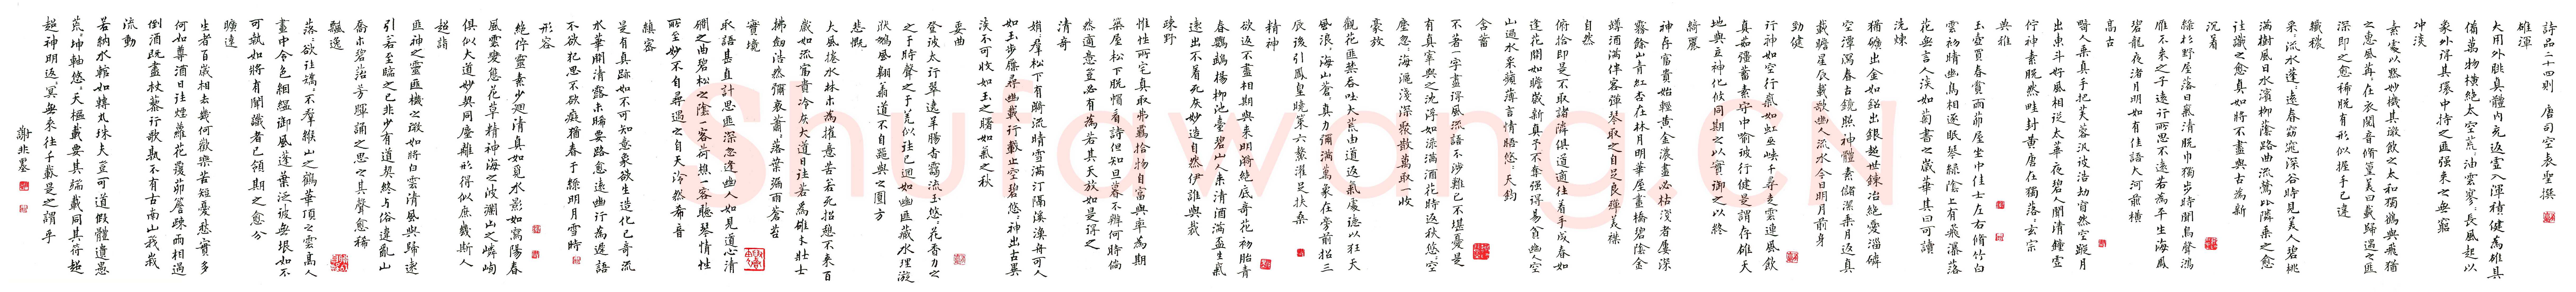 詩品二十四則 唐司空表聖撰
雄渾
大用外腓真體內充返虛入渾積健為雄具
備萬物橫絕太空荒荒油雲寥寥長風超以
象外得其環中持之匪強來之無窮
沖淡
素處以默妙機其微飲之太和獨鶴與飛猶
之惠風荏苒在衣閱音脩篁美曰載歸遇之匪
深即之愈稀脫有形似握手已違
纖穠
采采流水蓬蓬遠春窈窕深谷時見美人碧桃
滿樹風日水濱柳陰路曲流鶯比隣乘之愈
往識之愈真如將不盡與古為新
沉着
綠杉野屋落日氣清脫巾獨步時聞鳥聲鴻
雁不來之子遠行所思不遠若為平生海風
碧雲夜渚月明如有佳語大河前橫
高古
畸人乘真手把芙蓉汎彼浩劫窅然空蹤月
出東斗好風相從太華夜碧人聞清鐘虛
佇神素脫然畦封黃唐在獨落落玄宗
典雅
玉壺買春賞雨茆屋坐中佳士左右脩竹白
雲初晴幽鳥相逐眠琴綠陰上有飛瀑落
花無言人淡如菊書之歲華其曰可讀
洗煉
猶礦出金如鉛出銀超心鍊冶絕愛淄磷
空潭瀉春古鏡照神體素儲潔乘月返真
載瞻星辰載歌幽人流水今日明月前身
勁健
行神如空行氣如虹巫峽千尋走雲連風飲
真茹強蓄素守中喻彼行健是謂存雄天
地與立神化攸同期之以實御之以終
綺麗
神存富貴始輕黃金濃盡必枯淺者屢深
霧餘山青紅杏在林月明華屋畫橋碧陰金
罇酒滿伴客彈琴取之自足良殫美襟
自然
俯拾即是不取諸隣俱道適往着手成春如
逢花開如瞻歲新真予不奪強得易貧幽人空
山過水采蘋薄言情悟悠悠天鈞
含蓄
不著一字盡得風流語不涉難已不堪憂是
有真宰與之沈浮如淥滿酒花時返秋悠悠空
塵忽忽海漚淺深聚散萬取一收
豪放
觀花匪禁吞吐大荒由道返氣處得以狂天
風浪浪海山蒼蒼真力彌滿萬象在旁前招三
辰後引鳳皇曉策六鰲濯足扶桑
精神
欲返不盡相期與來明漪絕底奇花初胎青
春鸚鵡楊柳池臺碧山人來清酒滿盃生氣
遠出不着死灰妙造自然伊誰與裁
疎野
惟性所宅真取弗羈拾物自富與率為期
築屋松下脫帽看詩但知旦暮不辨何時倘
然適意豈必有為若其天放如是得之
清奇
娟娟羣松下有漪流晴雪滿汀隔溪漁舟可人
如玉步屧尋幽載行載止空碧悠悠神出古異
淡不可收如玉之曙如氣之秋
委曲
登彼太行翠遶羊腸杳靄流玉悠悠花香力之
于時聲之于羌似往已迴如幽匪藏水理漩
洑鵬風翱翔道不自器與之圓方
悲慨
大風捲水林木為摧意苦若死招憩不來百
歲如流富貴冷灰大道日往若為雄才壯士
拂劍浩然彌哀蕭蕭落葉漏雨蒼苔
實境
取語甚直計思匪深忽逢幽人如見道心清
磵之曲碧松之陰一客荷樵一客聽琴情性
所至妙不自尋遇之自天泠然希音
縝密
是有真跡如不可知意象欲生造化已奇流
水花開清露未晞要路愈遠幽行為遲語
不欲犯思不欲癡猶春于綠明月雪時
形容
絕佇靈素少迴清真如覓水影如寫陽春
風雲變態花草精神海之波瀾山之嶙峋
俱似大道妙契同塵離形得似庶幾斯人
超詣
匪神之靈匪機之微如將白雲清風與歸遠
引若至臨之已非少有道契終與俗違亂山
喬木碧苔芳暉誦之思之其聲愈稀
飄逸
落落欲往矯矯不羣緱山之鶴華頂之雲高人
畫中令色絪縕御風蓬葉泛彼無垠如不
可執如將有聞識者已領期之愈分
曠達
生者百歲相去幾何歡樂苦短憂愁實多
何如尊酒日往煙蘿花覆茆簷疎雨相過
倒酒既盡杖藜行歌孰不有古南山峩峩
流動
若納水輨如轉丸珠夫豈可道假體遺愚
荒荒坤軸悠悠天樞載要其端載同其符超
超神明返返冥無來往千載是之謂乎
謝非墨
Shufawong C1